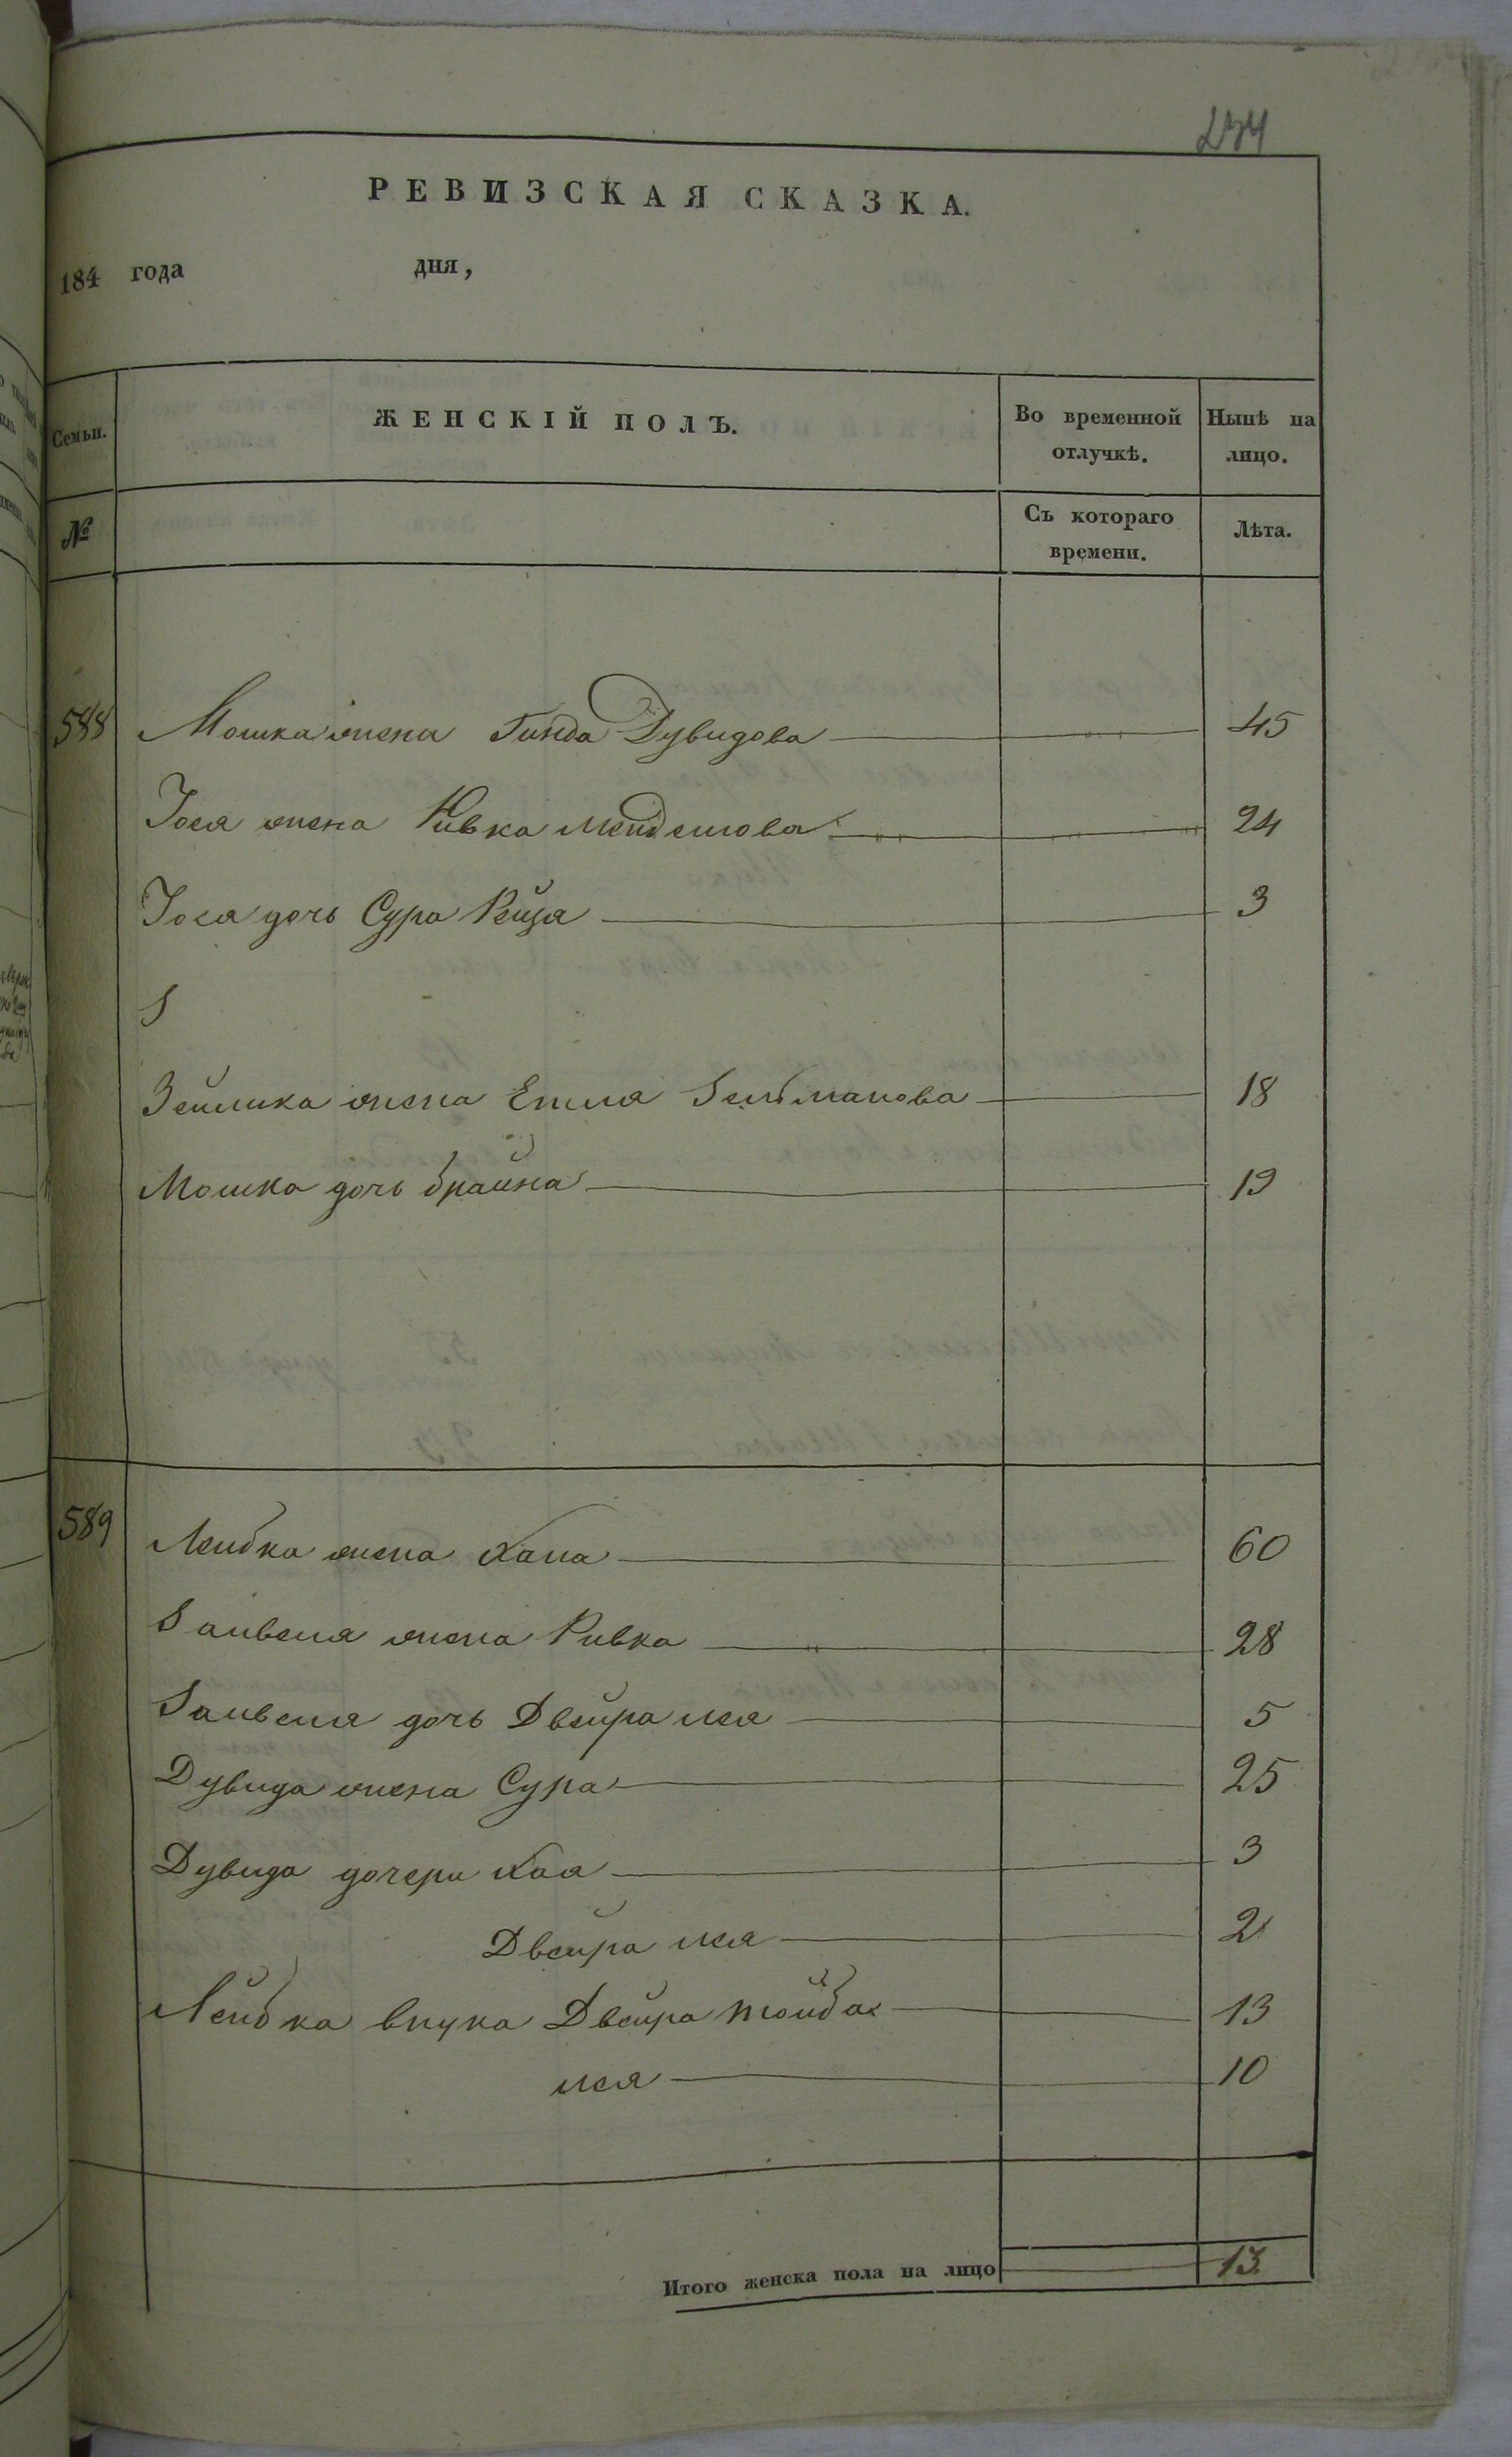 234
РЕВИЗСКАЯ СКАЗКА.
184 года дня,
Семьи. ЖЕНСКІЙ ПОЛЪ. Во временной отлучкѣ. Нынѣ на лицо.
№ Съ котораго времени. Лѣта.
588 Мошка жена Гинда Дувидова 45
Іося жена Ривка Менделова 24
Іося дочь Сура Рейза 3
Зейлика жена Етля Зельманова 18
Мошка дочь брайна 19
589 Лейбка жена Хана 60
Занвеля жена Ривка 28
Занвеля дочь Двейра лея 5
Дувида жена Сура 25
Дувида дочери Хая 3
Двейра лея 2
Лейбка внука Двейра тойба 13
лея 10
Итого женска пола на лицо 13